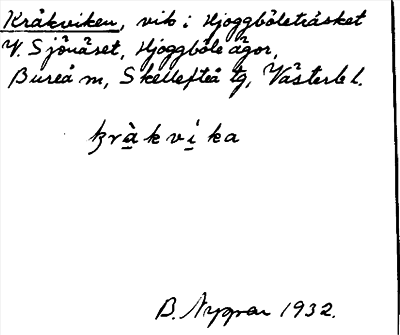 Kråkviken, vik i Hjoggböleträsket
V. Sjönäset, Hjoggböle ägor,
Bureå sn, Skellefteå tg, Västerb l.
kràkvika
B. Nygren 1932.